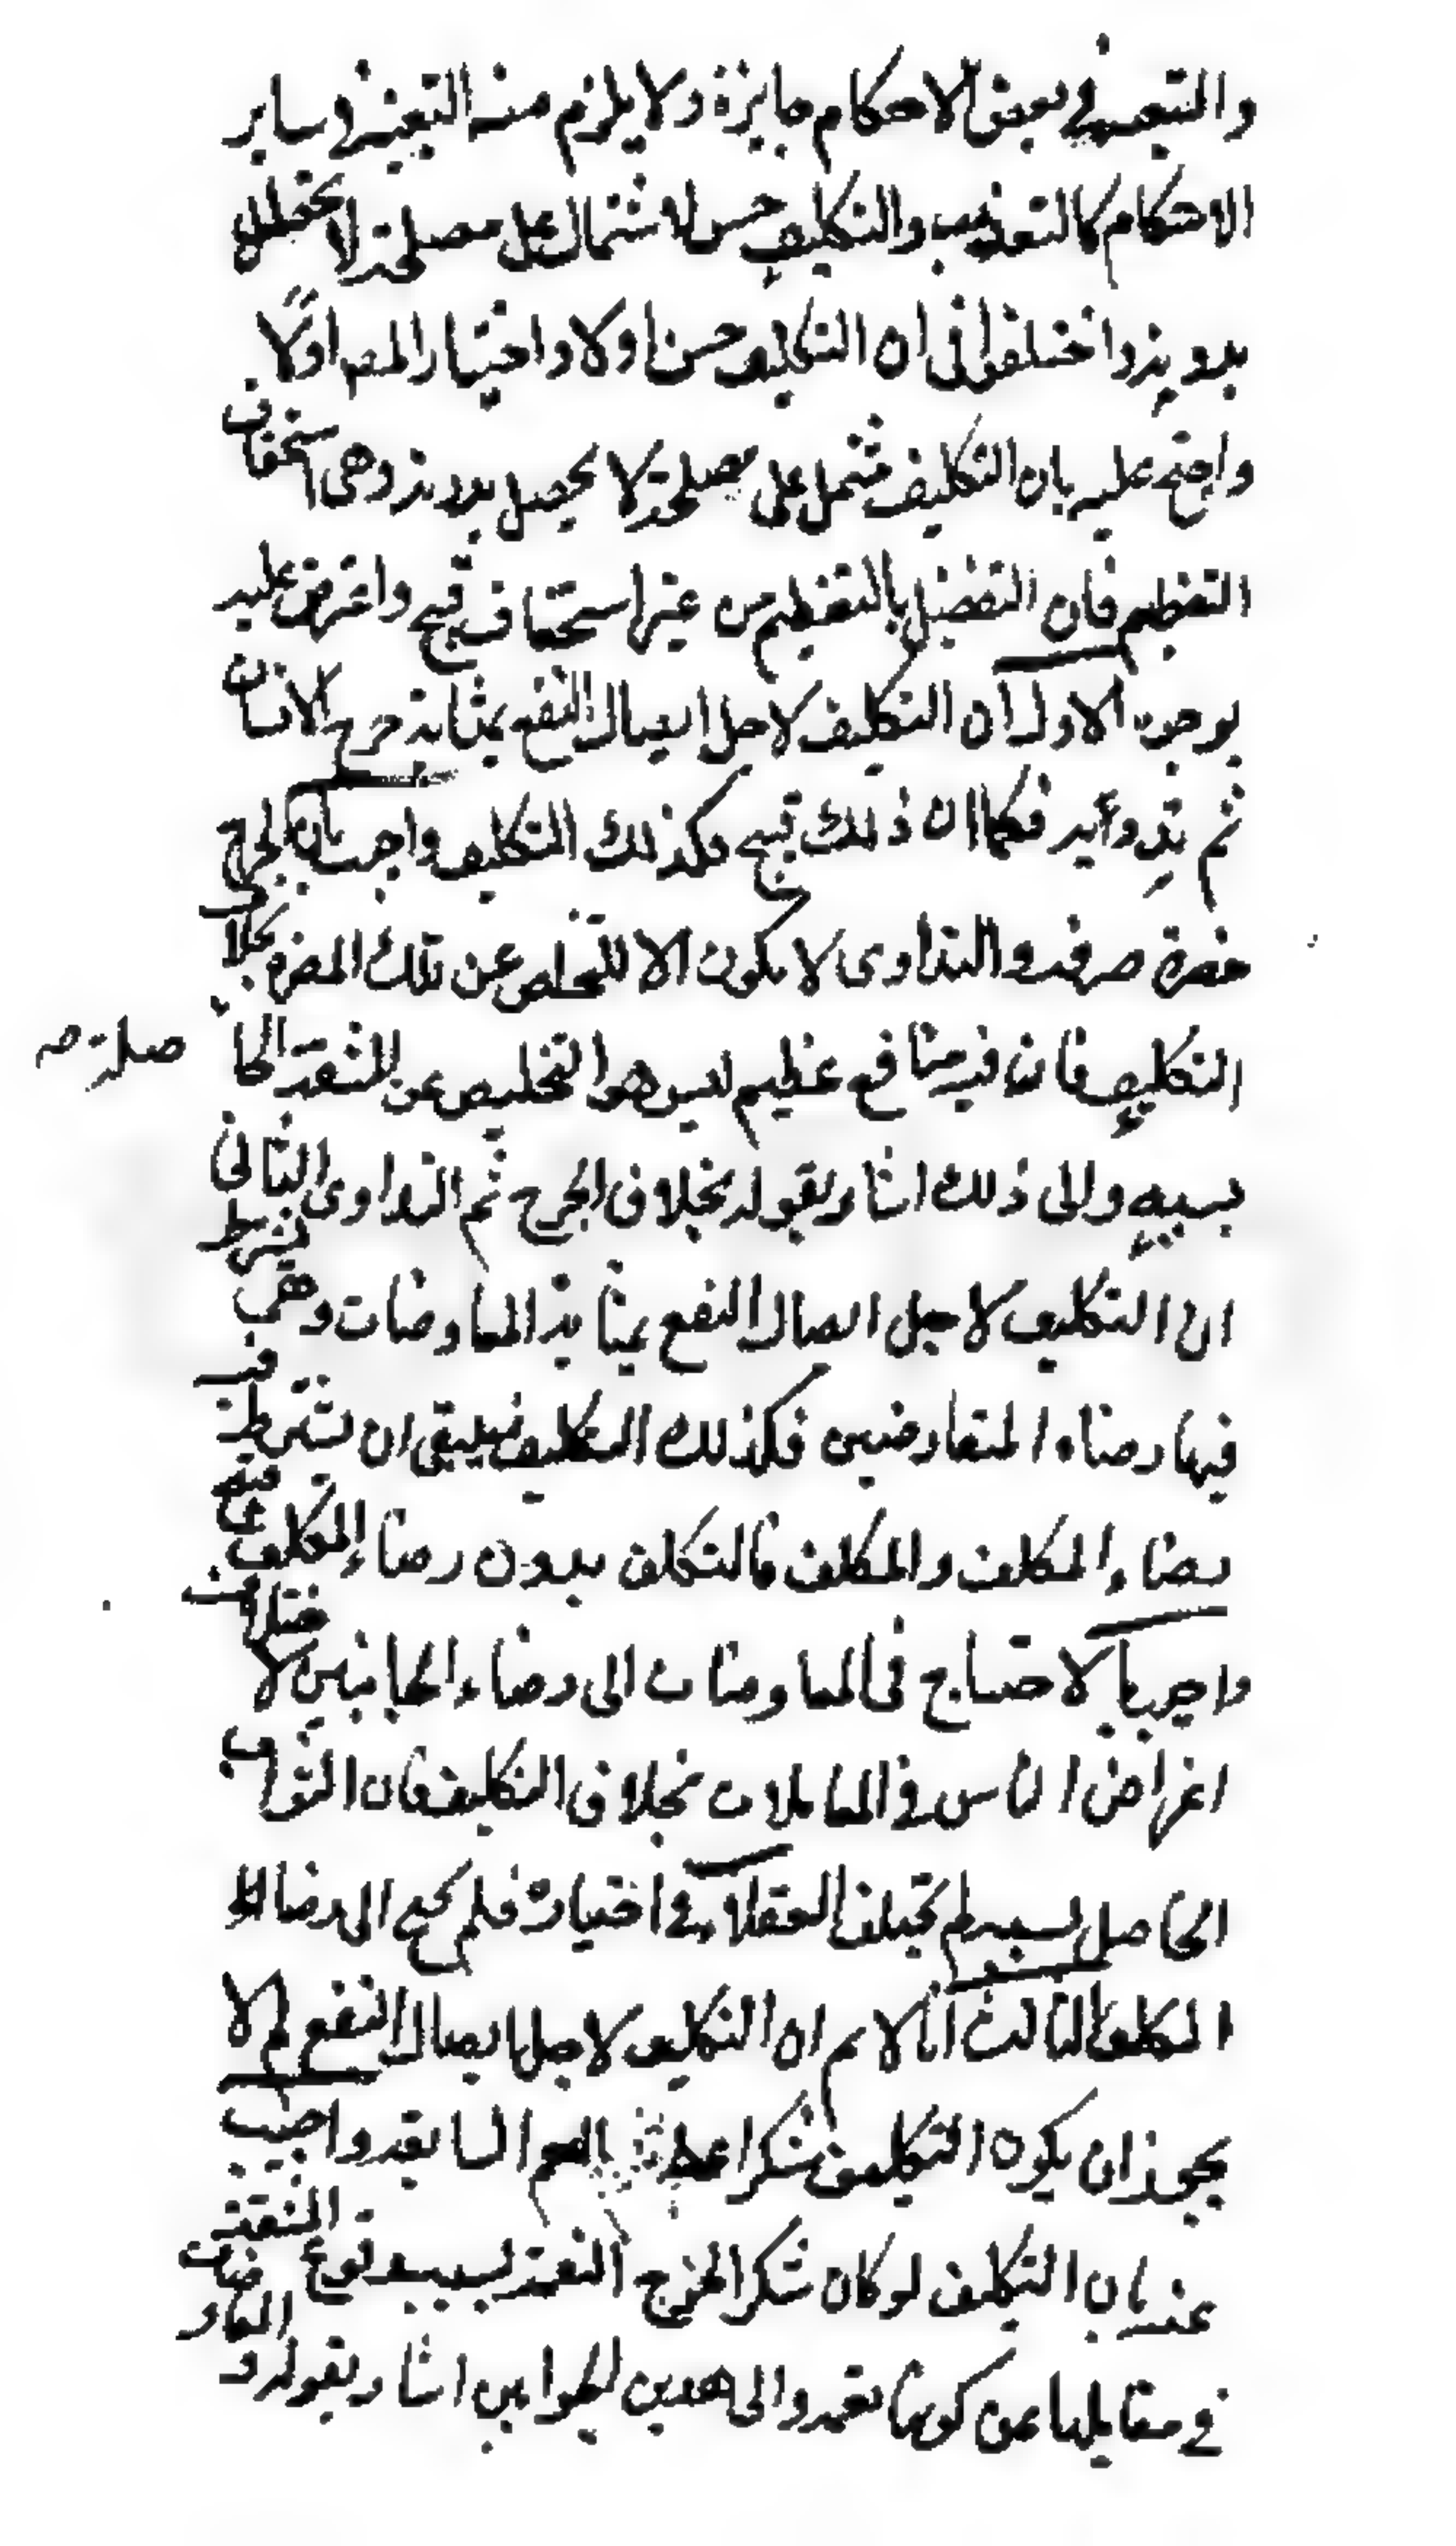 والتبعية في بعض الاحكام جايزة ولا يلزم منه التبعية في ساير
الاحكام كالتعذيب والتكليف حسن لاشتماله على مصلحة لا تحصل
بدونه واختلفوا في ان التكليف حسن او لا واختيار المص اولا
واحتج عليه بان التكليف مشتمل على مصلحة لا يحصل بدونه وهى استحقاق
التعظيم فان التفضيل بالتعظيم من غير استحقاق قبيح واعترض عليه
بوجوه الاول ان التكليف لاجل ايصال النفع بمثابة جرح الانسان
ثم تداويه فكما ان ذلك قبيح فكذلك التكليف واجيب بان الجرح
مضرة صرفة والتداوى لا يكون الا للتخلص عن تلك المضرة بخلاف
التكليف فان فيه منافع عظيم ليس هو التخليص عن المشقة الحا
صلة صه
بسببه والى ذلك اشار بقوله بخلاف الجرح ثم التداوى الثانى
ان التكليف لاجل ايصال النفع بمثابة المعاوضات وهى يشترط
فيها رضاء المتعاوضين فكذلك التكليف ينبغى ان يشترط فيه
رضاء المكلف والمكلف فالتكلف بدون رضاء المكلف قبيح
واجيب بالاحتياج في المعاوضات الى رضاء الجانبين لاختلاف
اغراض الناس في المعاملات بخلاف التكليف فان الثواب
الحاصل بسببه لم تختلف العقلاء في اختياره فلم يحتج الى رضا
المكلف الثالث انا لا نم ان التكليف لاجل ايصال النفع لم لا
يجوز ان يكون التكليف شكرا على النعم السابقة واجيب
عنه بان التكلف لو كان شكرا لخرج النعمة بسبب وقوع المشقة
في مقابلها عن كونها نعمة والى هذين الجوابين اشار بقوله والمعاوضات